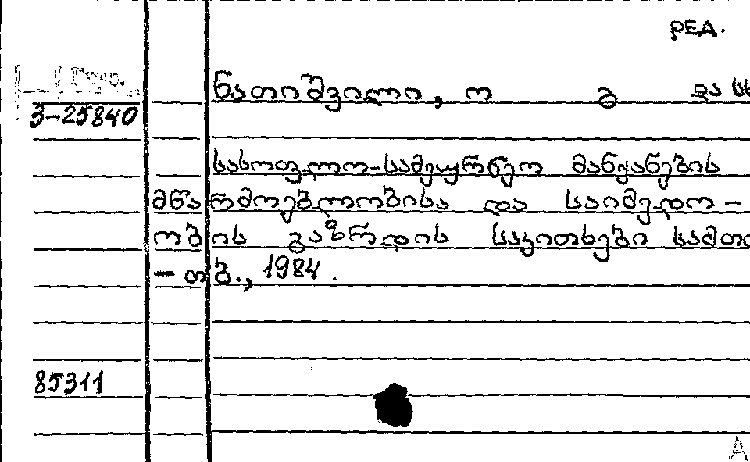 РЕД.
ნათიშვილი, ო გ და სხ
3-25840
სასოფლო-სამეურნეო მანქანების
მწარმოებლობისა და საიმედო-
ობის გაზრდის საკითხები სამთო
- თბ., 1984.
85311